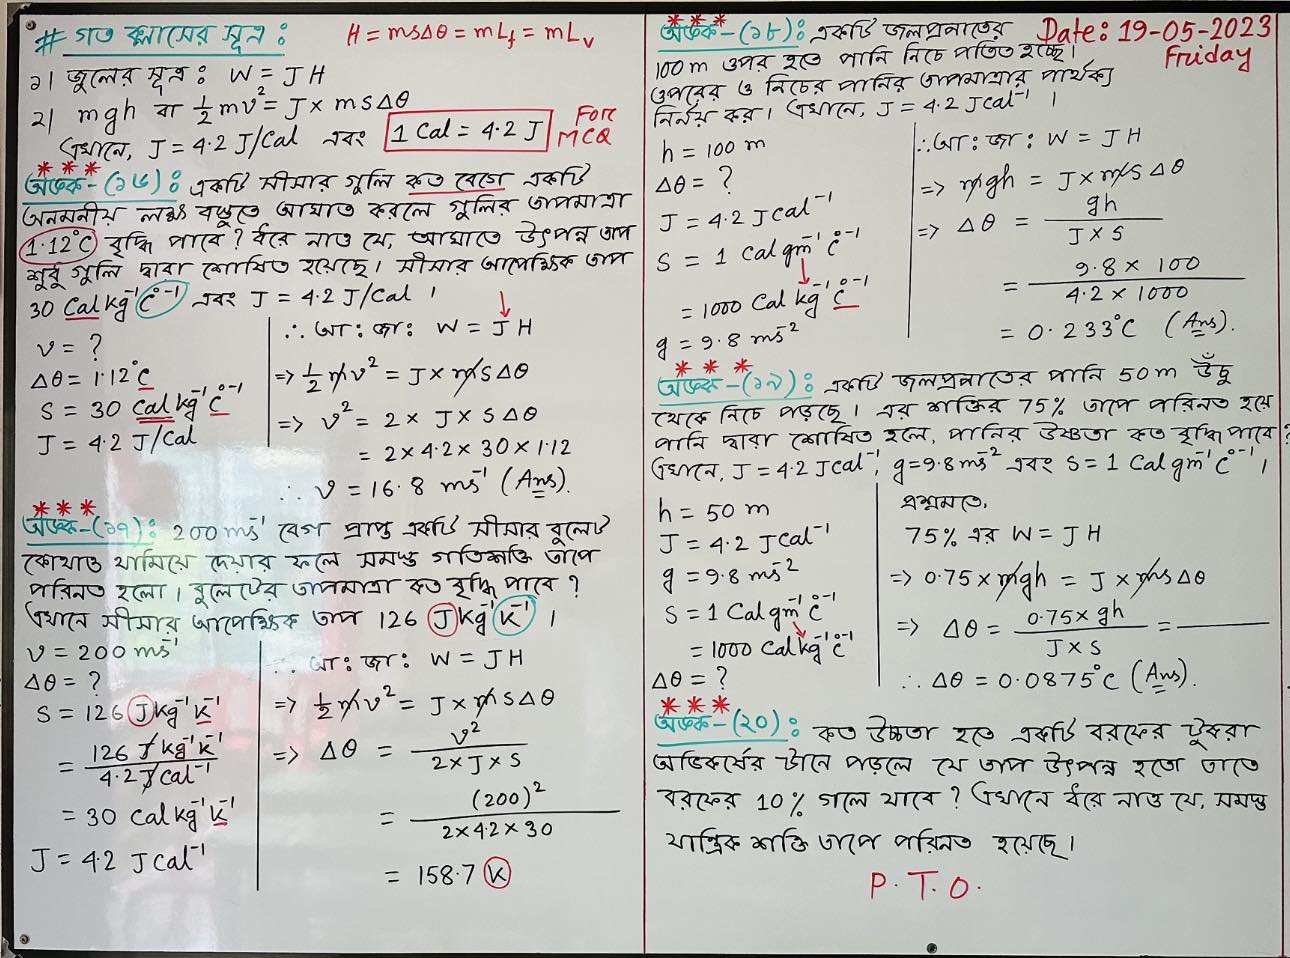 # গত ক্লাসের সূত্র : H = msΔθ = mL_f = mL_v
১। জুলের সূত্র : W = JH
২। mgh বা ½mv² = J × msΔθ
এখানে, J = 4.2 J/Cal এবং 1 Cal = 4.2 J For MCQ
***
অংক-(১৬) : একটি সীসার গুলি কত বেগে একটি
অনমনীয় লক্ষ্য বস্তুতে আঘাত করলে গুলির তাপমাত্রা
1.12°C বৃদ্ধি পাবে? ধরে নাও যে, আঘাতে উৎপন্ন তাপ
শুধু গুলি দ্বারা শোষিত হয়েছে। সীসার আপেক্ষিক তাপ
30 Cal kg⁻¹ C°⁻¹ এবং J = 4.2 J/Cal ।
v = ?
Δθ = 1.12°C
S = 30 Cal kg⁻¹ C°⁻¹
J = 4.2 J/Cal
∴ আ: জা: W = JH
=> ½mv² = J × msΔθ
=> v² = 2 × J × SΔθ
= 2×4.2×30×1.12
∴ v = 16.8 ms⁻¹ (Ans).
***
অংক-(১৭) : 200 ms⁻¹ বেগ প্রাপ্ত একটি সীসার বুলেট
কোথাও থামিয়ে দেয়ার ফলে সমস্ত গতিশক্তি তাপে
পরিনত হলো। বুলেটের তাপমাত্রা কত বৃদ্ধি পাবে?
এখানে সীসার আপেক্ষিক তাপ 126 J kg⁻¹ K⁻¹ ।
v = 200 ms⁻¹
Δθ = ?
S = 126 J kg⁻¹ K⁻¹
= 126 J kg⁻¹ K⁻¹ / 4.2 J Cal⁻¹
= 30 Cal kg⁻¹ K⁻¹
J = 4.2 J Cal⁻¹
∴ আ: জা: W = JH
=> ½mv² = J × msΔθ
=> Δθ = v² / 2×J×S
= (200)² / 2×4.2×30
= 158.7 K
***
অংক-(১৮) : একটি জলপ্রপাতের Date: 19-05-2023
Friday
100 m উপর হতে পানি নিচে পতিত হচ্ছে।
উপরের ও নিচের পানির তাপমাত্রার পার্থক্য
নির্নয় কর। এখানে, J = 4.2 J Cal⁻¹ ।
h = 100 m
Δθ = ?
J = 4.2 J Cal⁻¹
S = 1 Cal gm⁻¹ C°⁻¹
= 1000 Cal kg⁻¹ C°⁻¹
g = 9.8 ms⁻²
∴ আ: জা: W = JH
=> mgh = J × msΔθ
=> Δθ = gh / J×S
= 9.8 × 100 / 4.2 × 1000
= 0.233°C (Ans).
***
অংক-(১৯) : একটি জলপ্রপাতের পানি 50 m উঁচু
থেকে নিচে পড়ছে। এর শক্তির 75% তাপে পরিনত হয়ে
পানি দ্বারা শোষিত হলে, পানির উষ্ণতা কত বৃদ্ধি পাবে?
এখানে, J = 4.2 J Cal⁻¹, g = 9.8 ms⁻² এবং S = 1 Cal gm⁻¹ C°⁻¹ ।
h = 50 m
J = 4.2 J Cal⁻¹
g = 9.8 ms⁻²
S = 1 Cal gm⁻¹ C°⁻¹
= 1000 Cal kg⁻¹ C°⁻¹
Δθ = ?
প্রশ্নমতে,
75% এর W = JH
=> 0.75 × mgh = J × msΔθ
=> Δθ = 0.75 × gh / J×S = ———
∴ Δθ = 0.0875°C (Ans).
***
অংক-(২০) : কত উচ্চতা হতে একটি বরফের টুকরা
অভিকর্ষের টানে পড়লে যে তাপ উৎপন্ন হতো তাতে
বরফের 10% গলে যাবে? এখানে ধরে নাও যে, সমস্ত
যান্ত্রিক শক্তি তাপে পরিনত হয়েছে।
P. T. O.